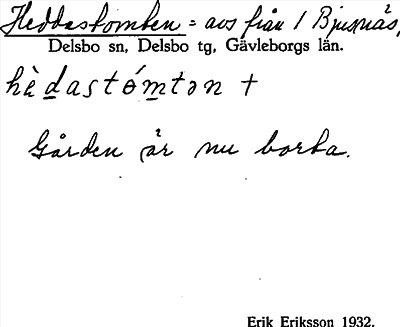 Heddastomten = avs från 1 Bjusnäs,
Delsbo sn, Delsbo tg, Gävleborgs län.
hèdastómtən +
Gården är nu borta.
Erik Eriksson 1932.